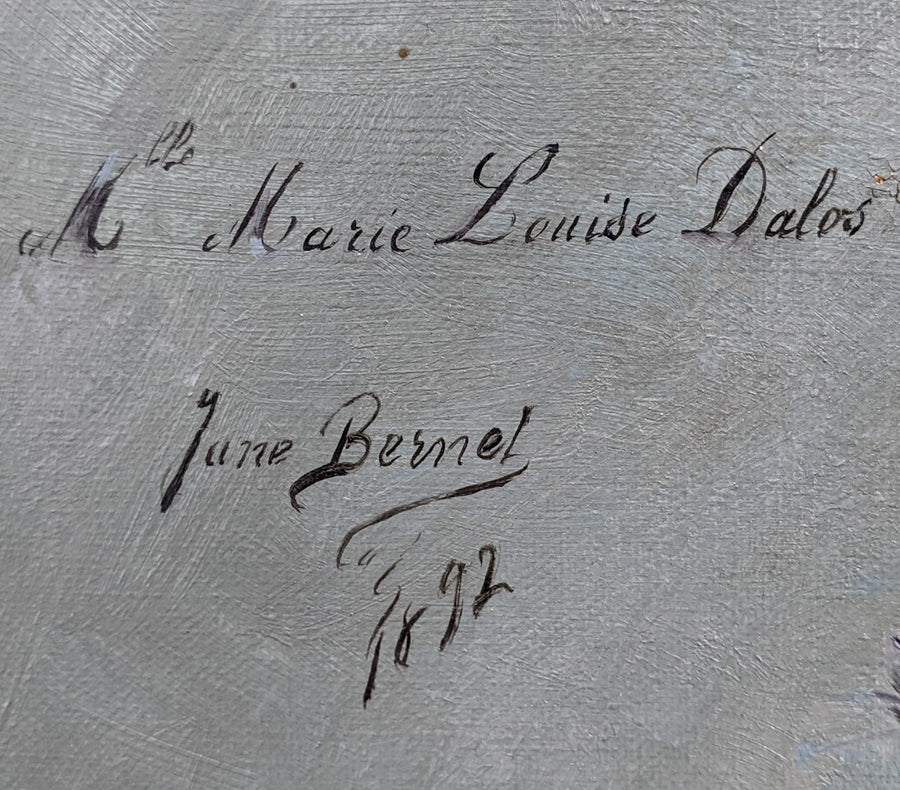 Mlle Marie Louise Dalos
Jane Bernel
1892